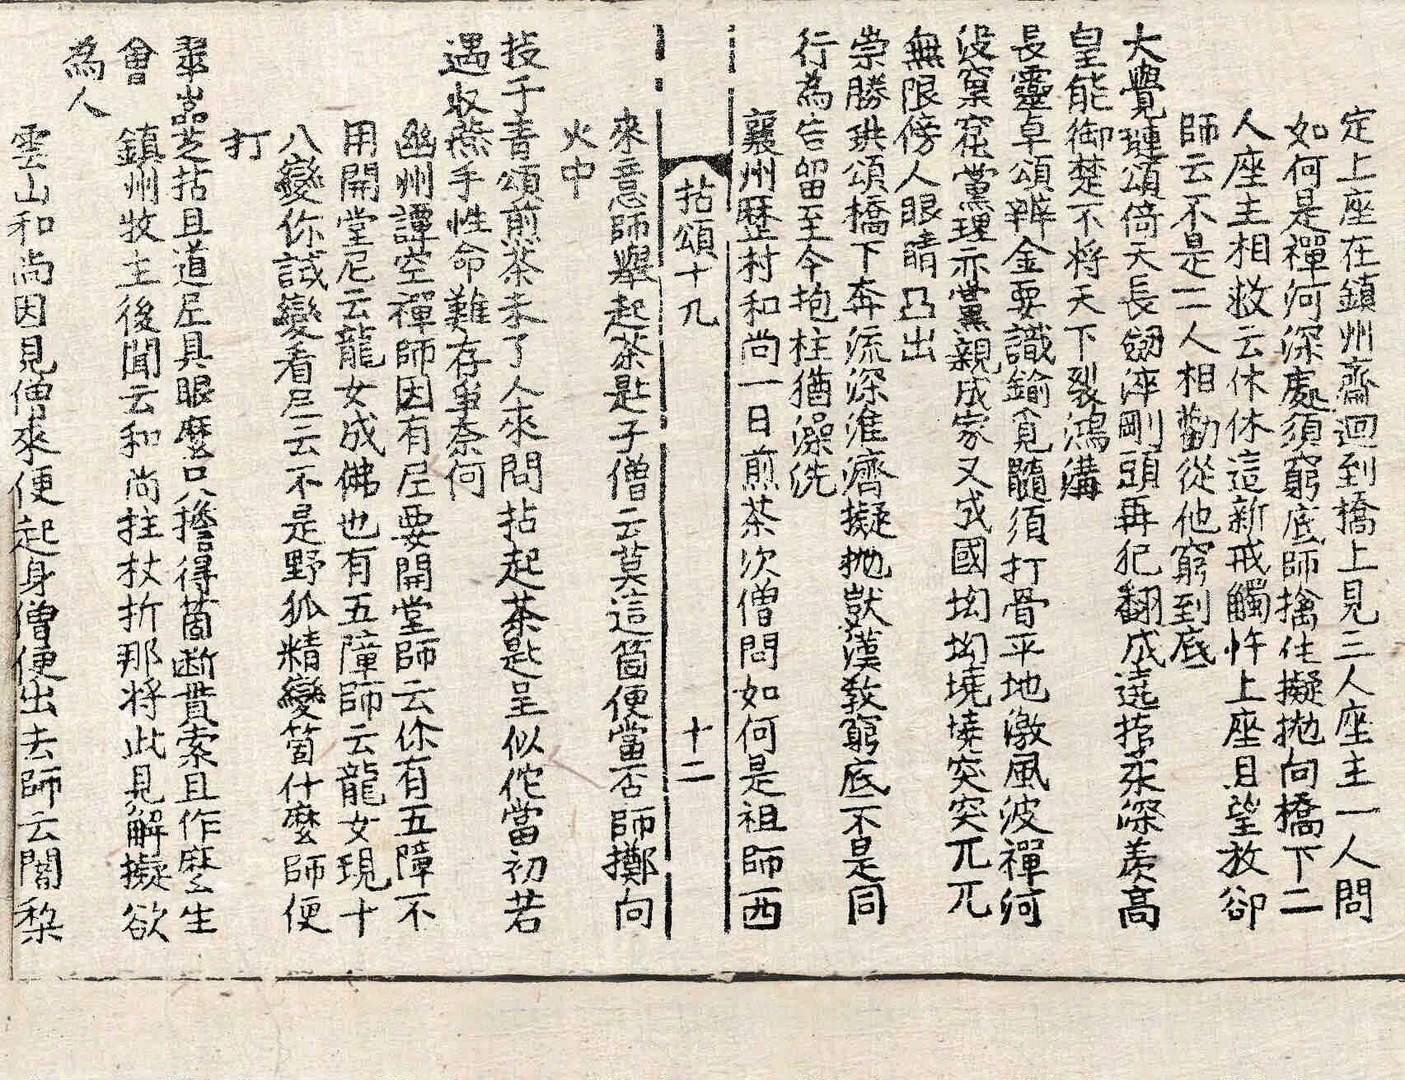 定上座在鎮州齋迴到橋上見三人座主一人問
如何是禪河深處須窮底師擒住擬抛向橋下二
人座主相救云休休這新戒觸忤上座且望放卻
師云不是二人相勸從他窮到底
大覺璉頌倚天長劒淬剛頭再犯翻成遠指柔深羨高
皇能御楚不將天下裂鴻溝
長靈卓頌辨金要識鍮覓髓須打骨平地激風波禪河
没窠窟黨理亦黨親成家又成國坳坳墝墝突突兀兀
無限傍人眼睛凸出
崇勝珙頌橋下奔流深淮濟擬抛獃漢教窮底不是同
行為告留至今抱柱猶澡洗
襄州歷村和尚一日煎茶次僧問如何是祖師西
拈頌十九
十二
來意師舉起茶匙子僧云莫這箇便當否師擲向
火中
投子青頌煎茶未了人來問拈起茶匙呈似佗當初若
遇収燕手性命難存爭奈何
幽州譚空禪師因有尼要開堂師云你有五障不
用開堂尼云龍女成佛也有五障師云龍女現十
八變你試變看尼云不是野狐精變箇什麼師便
打
翠嵓芝拈且道尼具眼麼只擔得箇断貫索且作麼生
會 鎮州牧主後聞云和尚拄杖折那将此見解擬欲
為人
雲山和尚因見僧來便起身僧便出去師云闍梨